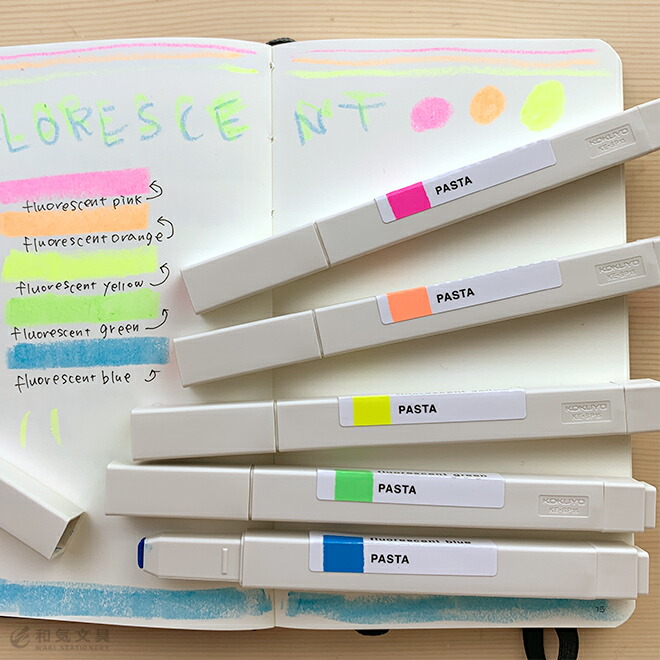 LORESCE NT
fluorescent pink
fluorescent orange
fluorescent yellow
fluorescent green
fluorescent blue
PASTA
KOKUYO
KE-SP15
PASTA
KOKUYO
KE-SP15
PASTA
KOKUYO
KE-SP15
fluorescent green
PASTA
KOKUYO
KE-SP15
fluorescent blue
PASTA
15
和気文具
WAKI STATIONERY